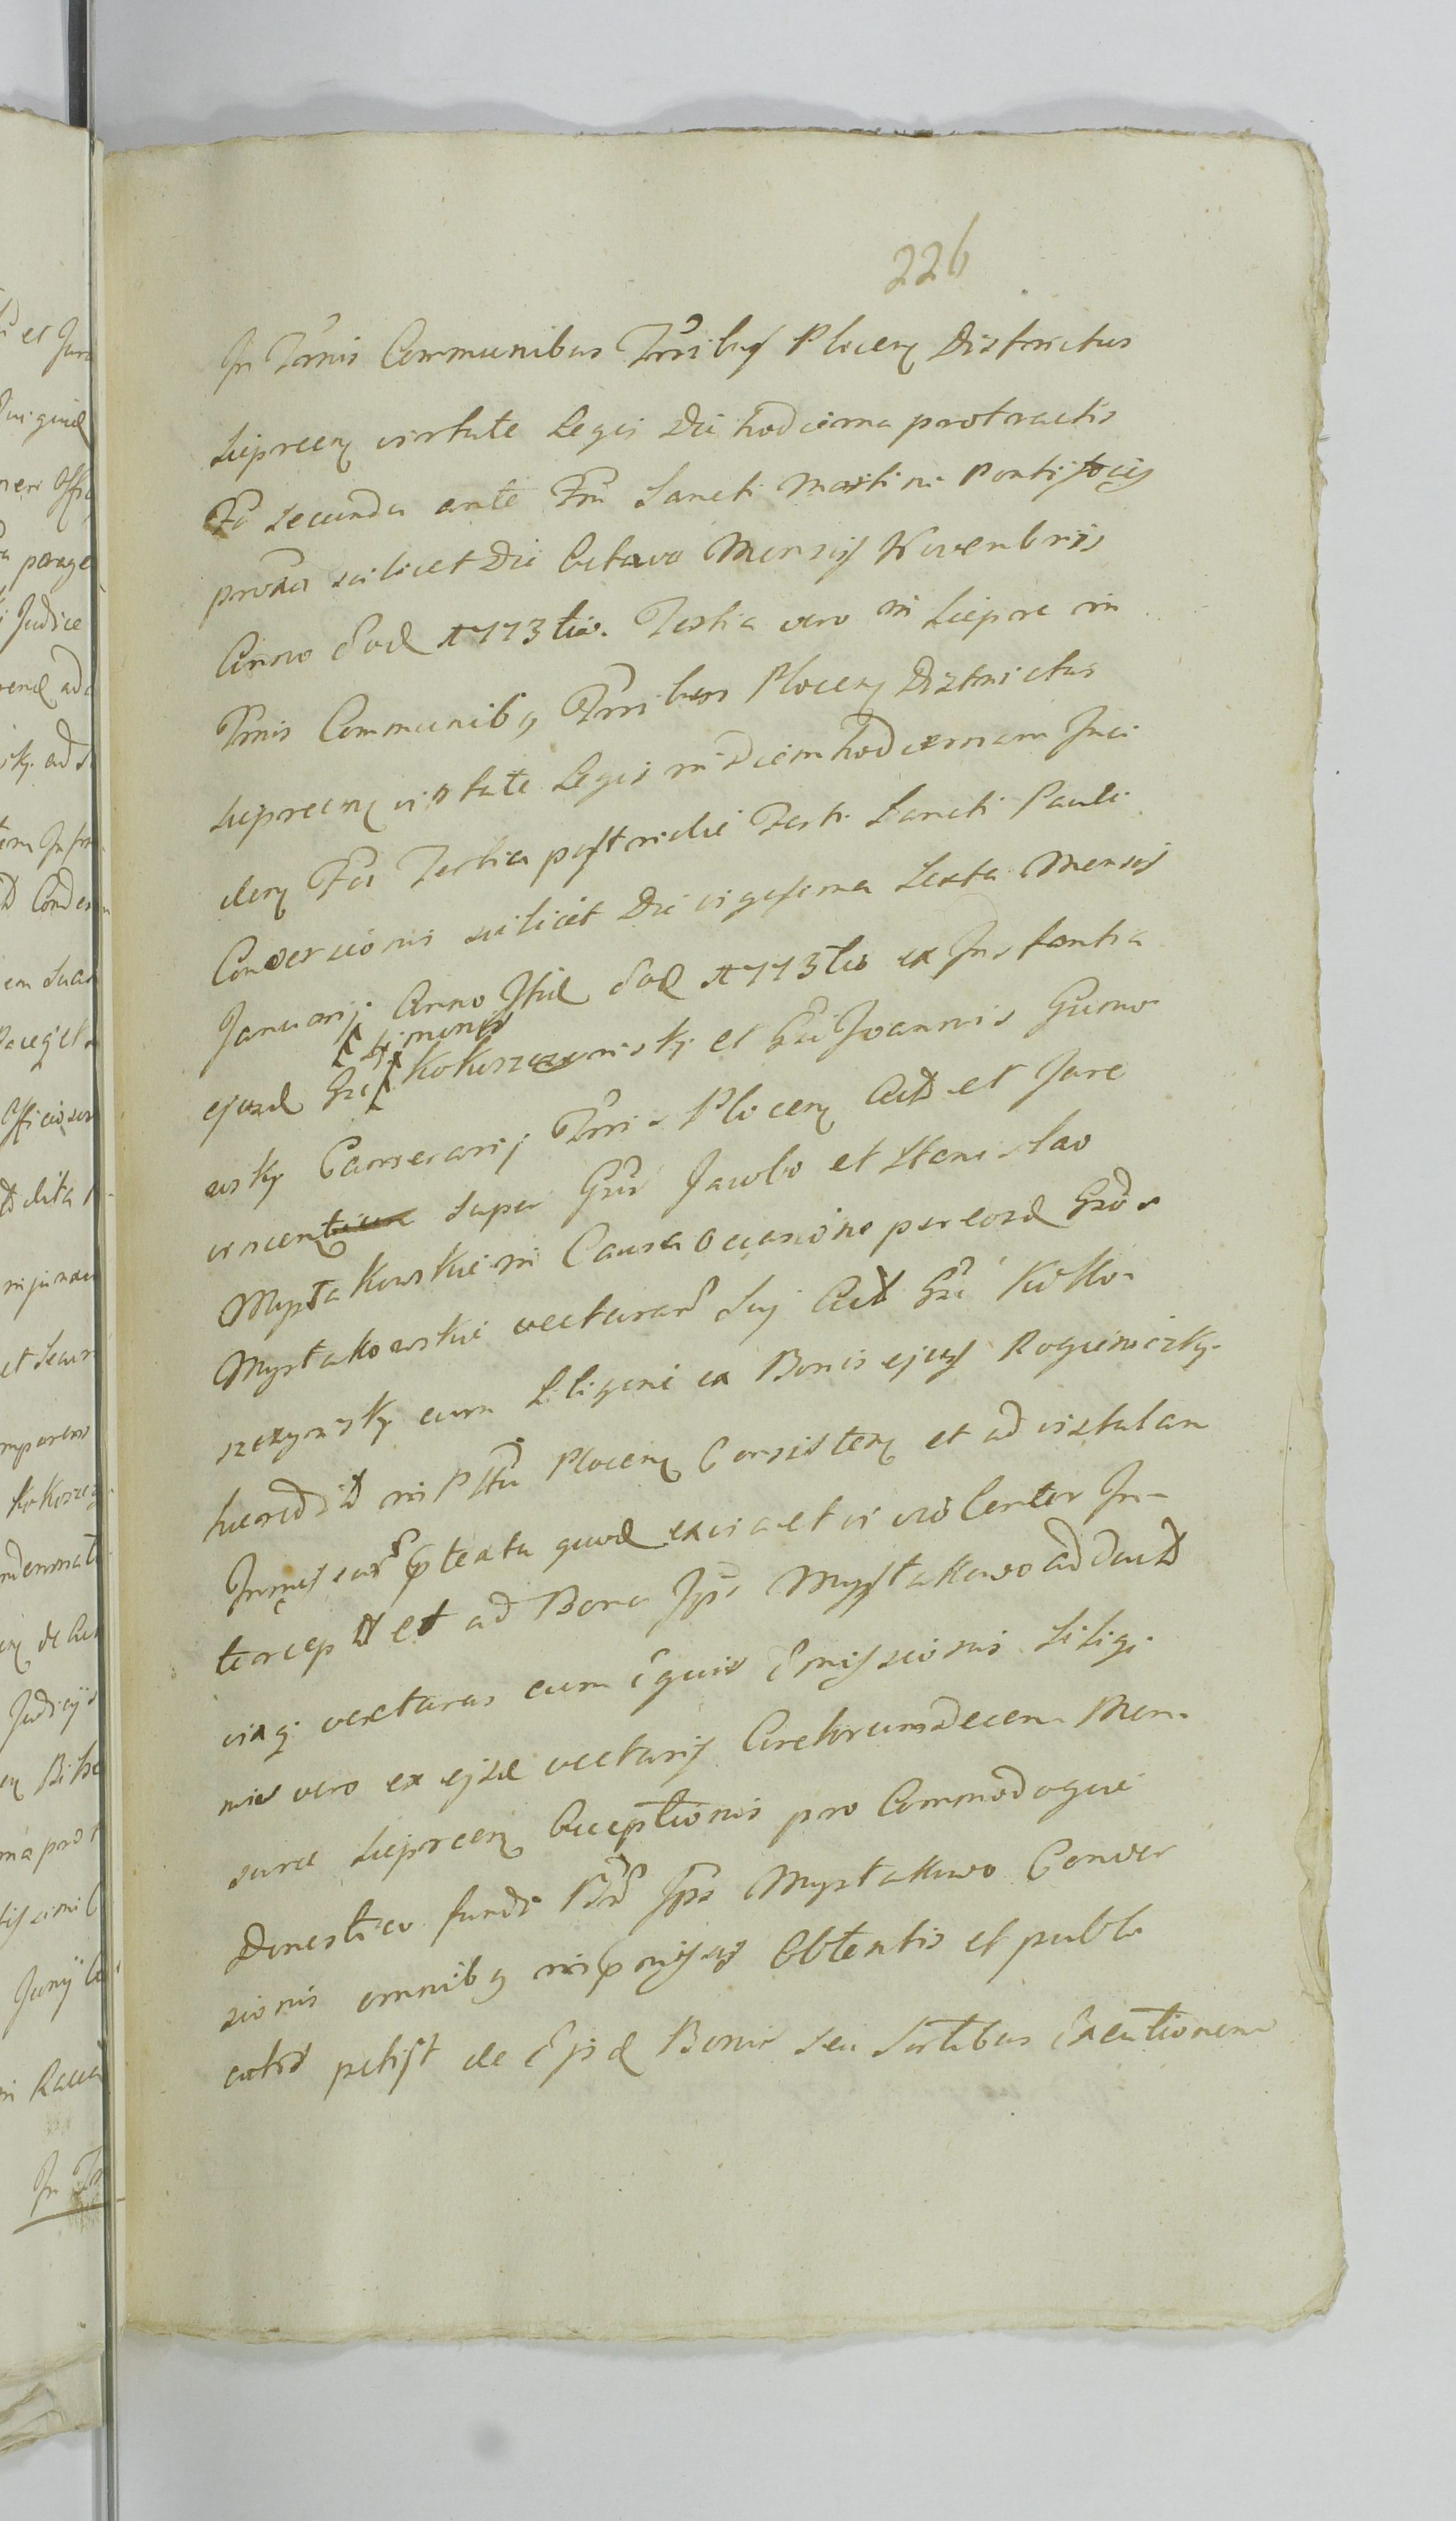 226
In Tmis Communibus Trribus Plocen Districtus
Siepreen virtute Legis Die hodierna protractis
Fa secunda ante Fm Sancti Martini Pontificis
proxa scilicet Die Octava Mensis Novembris
Anno Eod 1773tio. Tertia vero in Sieprc in
Tmis Communibus Trribus Plocen Districtus
Siepreen virtute Legis in Diem hodiernam Inci
den Fa Tertia postridie Festi Sancti Pauli
Conversionis scilicet Die vigesima Sexta Mensis
Januarij Anno Eod 1773tio ex Instantia
Simonis
ejusd Gsi Kokoszczynsky et Gsi Joannis Gumo
wsky Camerarij Trris Plocen Act et Jure
vincen super Gsis Jacobo et Stanislao
Mystakowskie in Causa occasione per eosd Gsos
Mystakowskie vecturar Suj Act Gsi Kokko
szczynsky cum Siligine ex Bonis ejus Rogieniczky
haered in Pttu Plocen Consisten et ad vistulam
Immissar ptextu quod ex via et vi violenter In
tercep et ad Bona Ips Mystakowo adduct
viaq vecturas cum Equis Emissionis Silig
nis vero ex ejsd vecturis Coretorum decem Men
surae Siepreen Acceptionis pro Commodoque
Domestico fundi Bnr Ips Mystakowo Conver
sionis omnibus in pmissis Obtentis et publi
catis petijt de Ejsd Bonis seu Sortibus Exeutionem